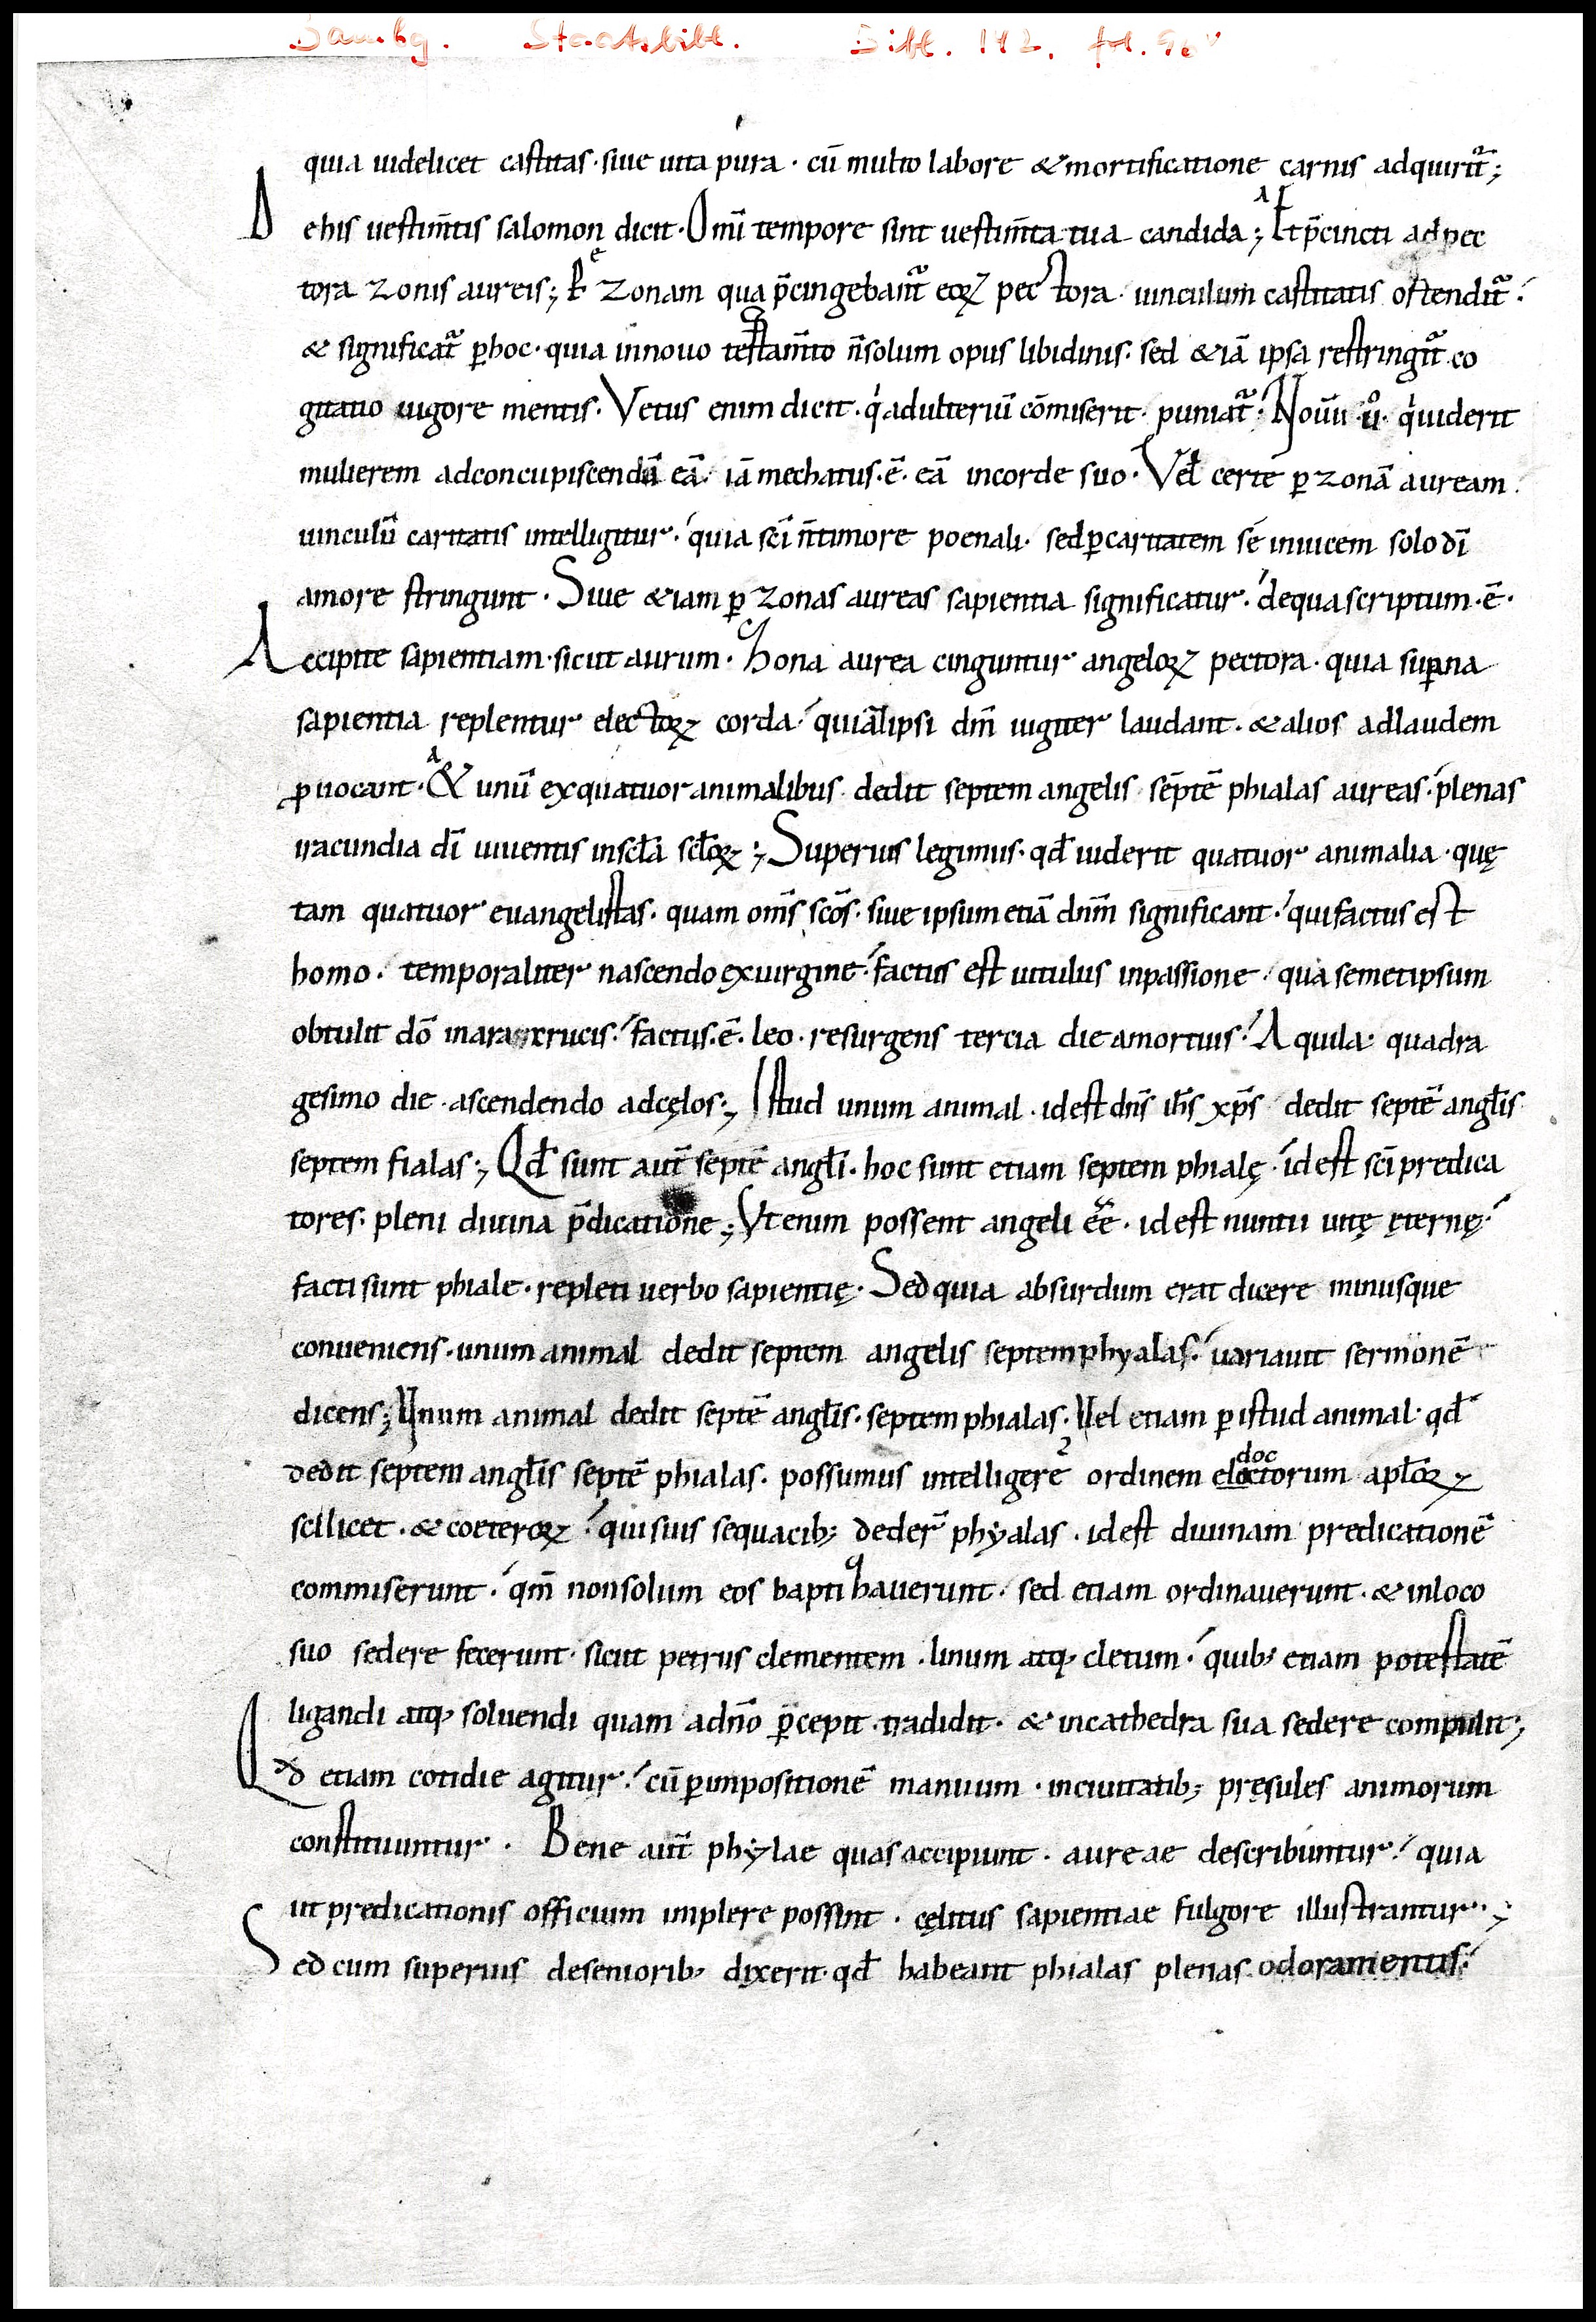 Bambg. Staatsbibl. Bibl. 142. fol. 96v
quia uidelicet castitas · siue uita pura · cū multo labore & mortificatione carnis adquirit᷑;
Dehis uestim̄tis salomon dicit · Om̄i tempore sint uestim̄ta tua candida; Et p̄cincti ad pec
tora zonis aureis; P̱ zonam qua p̄cingebant᷑ eoꝝ pectora · uinculum castitatis ostendit᷑ ·
& significat᷑ ꝑ hoc · quia innouo testam̄to n̄ solum opus libidinis · sed &iā ipsa restringit᷑ co
gitatio uigore mentis · Vetus enim dicit · q̇ adulteriū cōmiserit · puniat᷑ · Nouū uͦ · q̇ uiderit
mulierem adconcupiscendā eā · iā mechatus · ē · eā incorde suo · Vel certe ꝑ zonā auream
uinculū caritatis intelligitur · quia sc̄i n̄ timore poenali · sed ꝑ caritatem se inuicem solo dī
amore stringunt · Siue &iam ꝑ zonas aureas sapientia significatur · dequa scriptum · ē ·
Accipite sapientiam · sicut aurum · Zona aurea cinguntur angeloꝝ pectora · quia suꝑna
sapientia replentur electoꝝ corda · quia & ipsi dm̄ iugiter laudant · & alios adlaudem
ꝓuocant · & unū exquatuor animalibus dedit septem angelis septē phialas aureas · plenas
iracundia dī uiuentis inscl̄a scl̄oꝝ; Superius legimus · qđ uiderit quatuor animalia · quę
tam quatuor euangelistas · quam om̄s sc̄os · siue ipsum etiā dnm̄ significant · qui factus est
homo · temporaliter nascendo exuirgine · factus est uitulus inpassione · qua semetipsum
obtulit dō inara crucis · factus · ē · leo · resurgens tercia die amortuis · Aquila · quadra
gesimo die · ascendendo adcęlos; Istud unum animal · id est dn̄s ih̄s xp̄s dedit septē angl̄is
septem fialas; Qđ sunt aut̄ septē angl̄i · hoc sunt etiam septem phialę · id est sc̄i predica
tores · pleni diuina p̄dicatione; Vt enim possent angeli eē · id est nuntii uitę ęternę ·
facti sunt phiale · repleti uerbo sapientię · Sed quia absurdum erat dicere minusque
conueniens · unum animal dedit septem angelis septem phyalas · uariauit sermonē
dicens; Vnum animal dedit septē angl̄is · septem phialas · Vel etiam ꝑ istud animal · qđ
dedit septem angl̄is septē phialas · possumus intelligere ordinem doctorum apl̄oꝝ
scilicet · & coeteroꝝ · qui suis sequacib; deder̄ phyalas · id est diuinam predicationē
commiserunt · qm̄ non solum eos baptizauerunt · sed etiam ordinauerunt · & inloco
suo sedere fecerunt · sicut petrus clementem · linum atq; cletum · quib; etiam potestatē
ligandi atq; soluendi quam adn̄o p̄cepit · tradidit · & incathedra sua sedere compulit;
Qd etiam cotidie agitur · cū ꝑ inpositionē manuum · inciuitatib; pręsules animorum
constituuntur · Bene aut̄ phylae quas accipiunt · aureae describuntur · quia
ut predicationis officium implere possint · cęlitus sapientiae fulgore illustrantur;
Sed cum superius deseniorib; dixerit · qđ habeant phialas plenas odoramentis ·